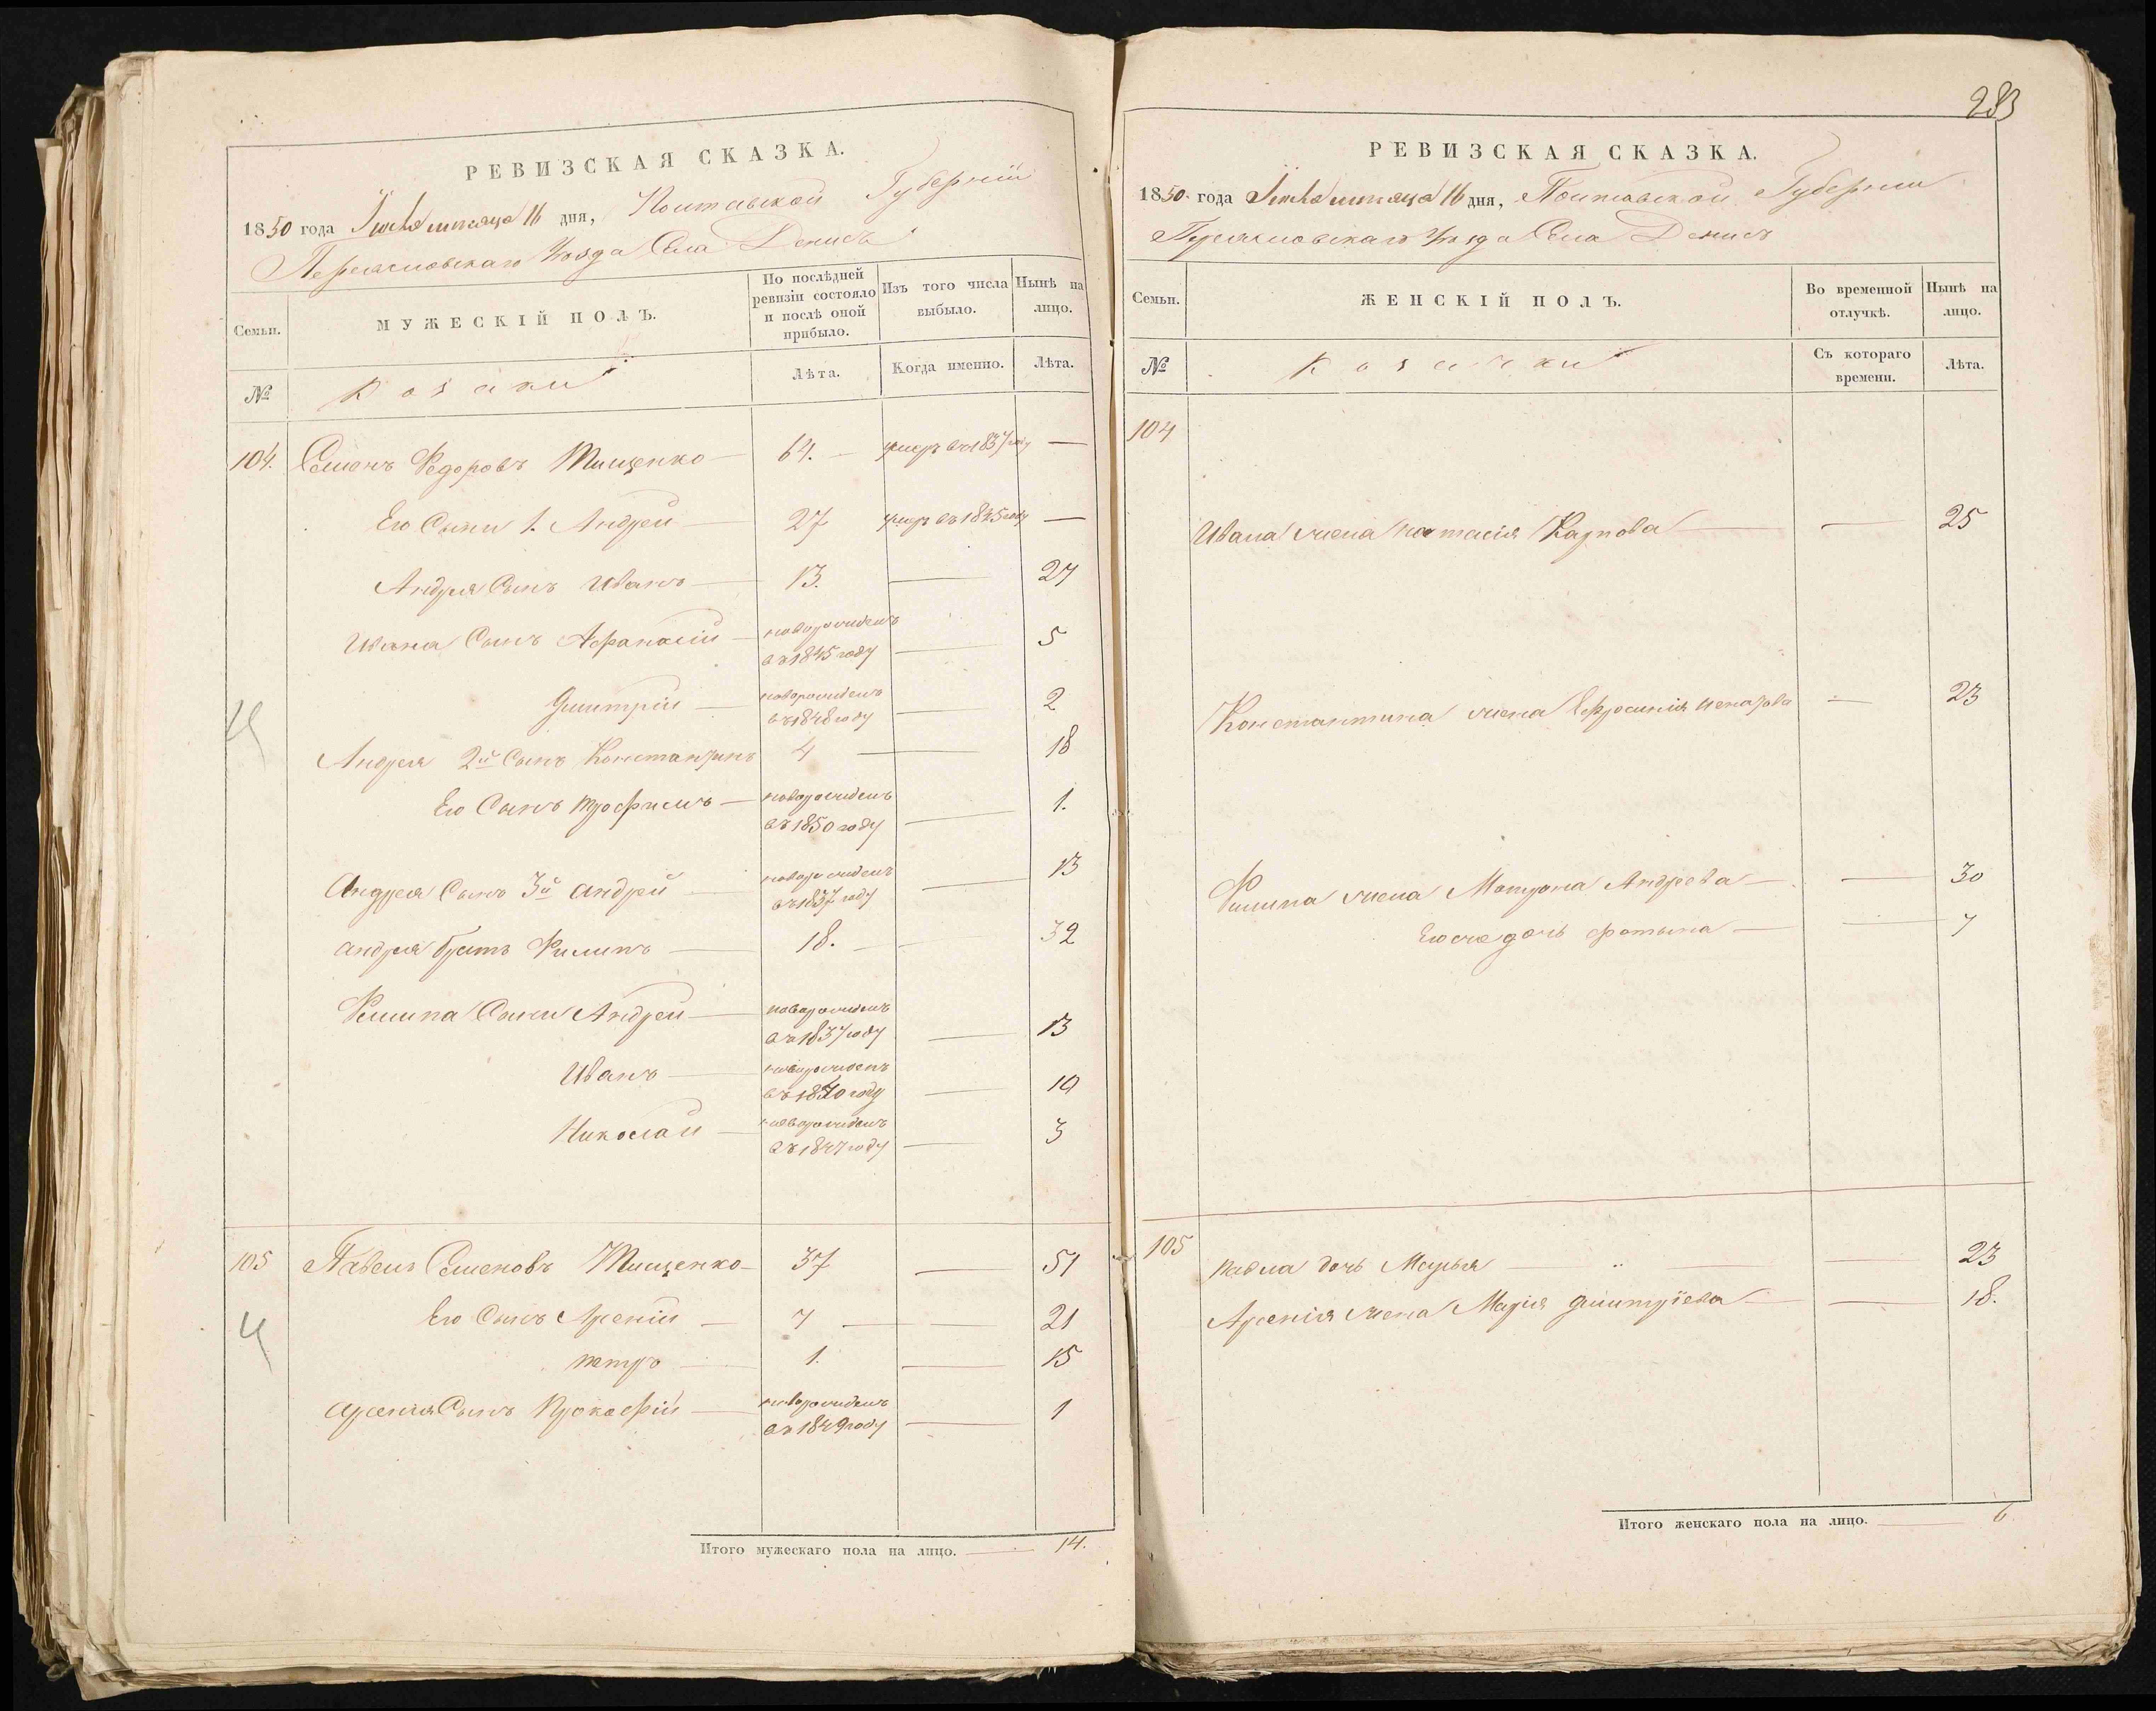 РЕВИЗСКАЯ СКАЗКА.
1850 года мѣсяца 16 дня, Полтавской Губерніи
Переяславскаго Уѣзда Села Денисъ
Семьи.
МУЖЕСКІЙ ПОЛЪ.
По послѣдней ревизіи состояло и послѣ оной прибыло.
Изъ того числа выбыло.
Нынѣ на лицо.
№
Козаки
Лѣта.
Когда именно.
Лѣта.
104. Семенъ Федоровъ Тищенко 64. умеръ въ 1837 году —
Его Сыни 1. Андрей 27 умеръ въ 1845 году —
Андрея Сынъ Иванъ 13. — 27
Ивана Сынъ Афанасій новорожденъ въ 1845 году — 5
Дмитрій новорожденъ въ 1848 году — 2
Андрея 2й Сынъ Константинъ 4 — 18
Его Сынъ Трофимъ новорожденъ въ 1850 году — 1.
Андрея Сынъ 3й Андрей новорожденъ въ 1837 году — 13
Андрея братъ Филипъ 18. — 32
Филипа Сыни Андрей новорожденъ въ 1837 году — 13
Иванъ новорожденъ въ 1840 году — 10
Николай новорожденъ въ 1847 году — 3
105 Павелъ Семеновъ Тищенко 37 — 51
Его Сынъ Арсеній 7 — 21
Петръ 1. — 15
Арсенія Сынъ Прокофій новорожденъ въ 1849 году — 1
Итого мужескаго пола на лицо. — 14.
283
РЕВИЗСКАЯ СКАЗКА.
1850 года мѣсяца 16 дня, Полтавской Губерніи
Переяславскаго Уѣзда Села Денисъ
Семьи.
ЖЕНСКІЙ ПОЛЪ.
Во временной отлучкѣ.
Нынѣ на лицо.
№
Козачки
Съ котораго времени.
Лѣта.
104
Ивана жена Настасія Карпова — 25
Константина жена Ефросинія — 23
Филипа жена Матрона Андреева — 30
Его же дочь Фотына — 7
105
Павла дочь Марья — 23
Арсенія жена Марія Дмитріева — 18.
Итого женскаго пола на лицо. — 6